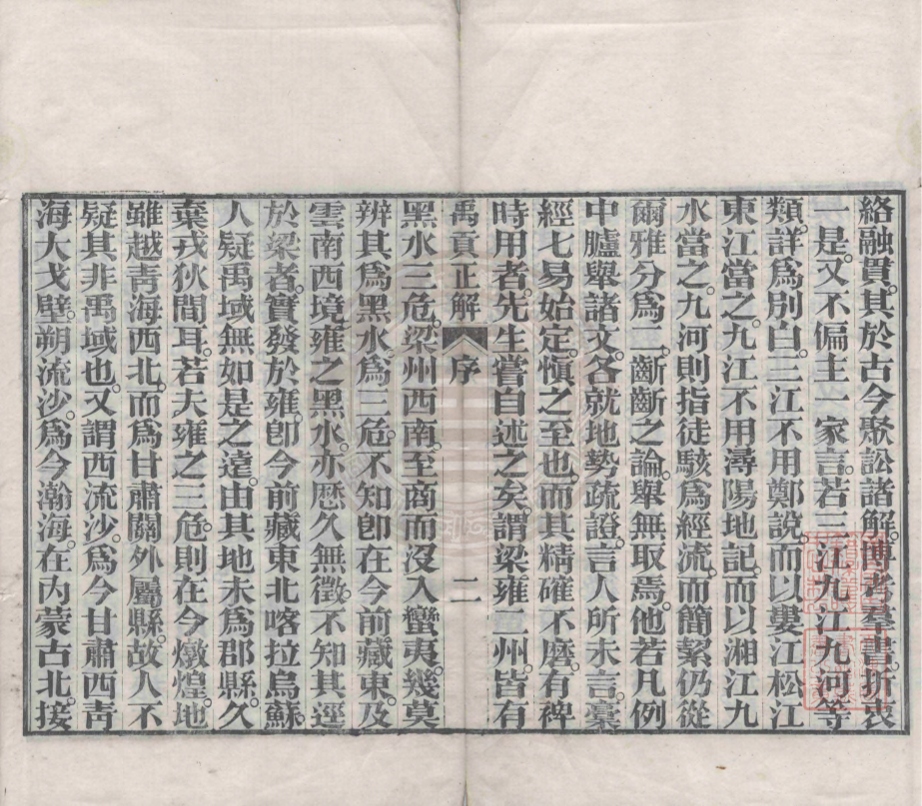 絡融貫其於古今聚訟諸解博考羣書折衷
一是又不偏主一家言若三江九江九河等
類詳爲別白三江不用鄭說而以婁江松江
東江當之九江不用潯陽地記而以湘江九
水當之九河則指徒駭爲經流而簡絜仍從
爾雅分爲二齗齗之論舉無取焉他若凡例
中臚舉諸文各就地勢疏證言人所未言稾
經七易始定愼之至也而其精確不磨有裨
時用者先生嘗自述之矣謂梁雍二州皆有
禹貢正解 序 二
黑水三危梁州西南至商而沒入蠻夷幾莫
辨其爲黑水爲三危不知卽在今前藏東及
雲南西境雍之黑水亦歷久無徵不知其逕
於梁者實發於雍卽今前藏東北喀拉烏蘇
人疑禹域無如是之遠由其地未爲郡縣久
棄戎狄間耳若夫雍之三危則在今燉煌地
雖越靑海西北而爲甘肅關外屬縣故人不
疑其非禹域也又謂西流沙爲今甘肅西靑
海大戈壁朔流沙爲今瀚海在內蒙古北接